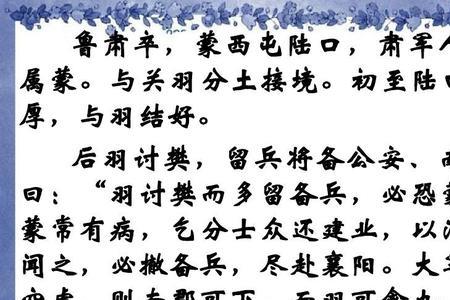 鲁肃卒，蒙西屯陆口，肃军
属蒙。与关羽分土接境。初至陆口
厚，与羽结好。
后羽讨樊，留兵将备公安、
曰：“羽讨樊而多留备兵，必恐蒙
蒙常有病，乞分士众还建业，以
闻之，必撤备兵，尽赴襄阳。大